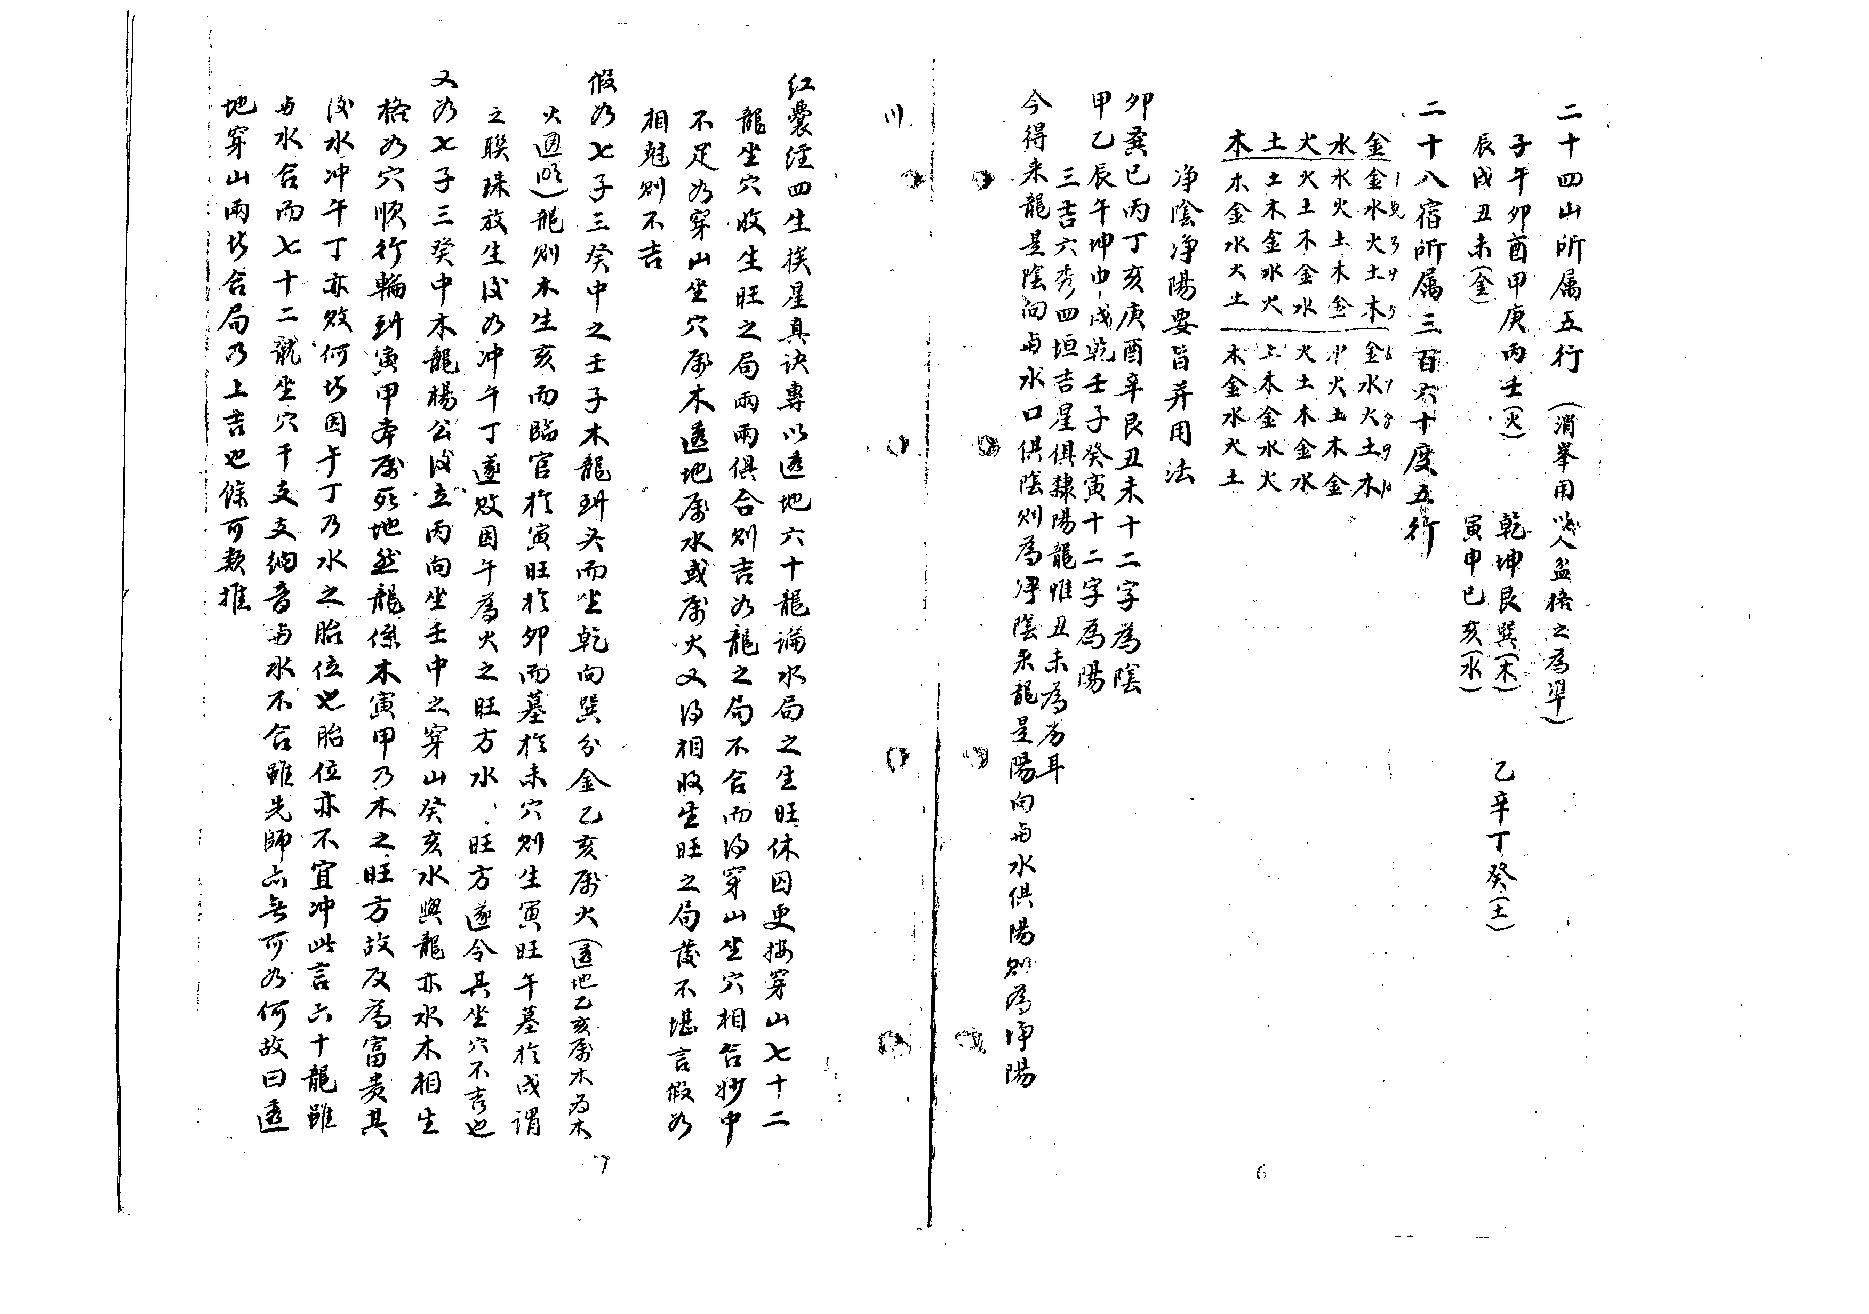 二十四山所属五行（消峯用以人盆格之為準）
子午卯酉甲庚丙壬（火）　乾坤艮巽（木）　乙辛丁癸（土）
辰戌丑未（金）　寅申巳亥（水）
二十八宿所属三百六十度五行
金　金水火土木　金水火土木
水　水火土木金　水火土木金
火　火土木金水　火土木金水
土　土木金水火　土木金水火
木　木金水火土　木金水火土
净陰净陽要旨并用法
卯巽巳丙丁亥庚酉辛艮丑未十二字為陰
甲乙辰午坤申戌乾壬子癸寅十二字為陽
三吉六秀四垣吉星俱隸陽龍惟丑未為劣耳
今得来龍是陰向与水口俱陰则為净陰来龍是陽向与水俱陽则為净陽
6
红囊经四生挨星真诀專以透地六十龍論水局之生旺休囚更接穿山七十二
龍坐穴收生旺之局兩兩俱合则吉为龍之局不合而得穿山坐穴相合妙中
不足为穿山坐穴属木透地属水或属火又得相收生旺之局後不堪言假为
相尅则不吉
假为七子三癸中之壬子木龍䢂头而坐乾向巽分金乙亥属火（透地乙亥属木为木
火通明）龍则木生亥而臨官於寅旺於卯而墓於未穴则生寅旺午墓於戌谓
之联珠放生後为冲午丁遂败因午為火之旺方水旺方遂令其坐穴不吉也
又为七子三癸中木龍楊公後立丙向坐壬中之穿山癸亥水與龍亦水木相生
格为穴順行輪䢂寅甲本属死地然龍係木寅甲乃木之旺方故反為富贵其
後水冲午丁亦败何皆因午丁乃水之胎位也胎位亦不宜冲此言六十龍雖
与水合而七十二龍坐穴干支支纳音与水不合雖先師亦無可为何故曰透
地穿山兩皆合局乃上吉也餘可類推
7